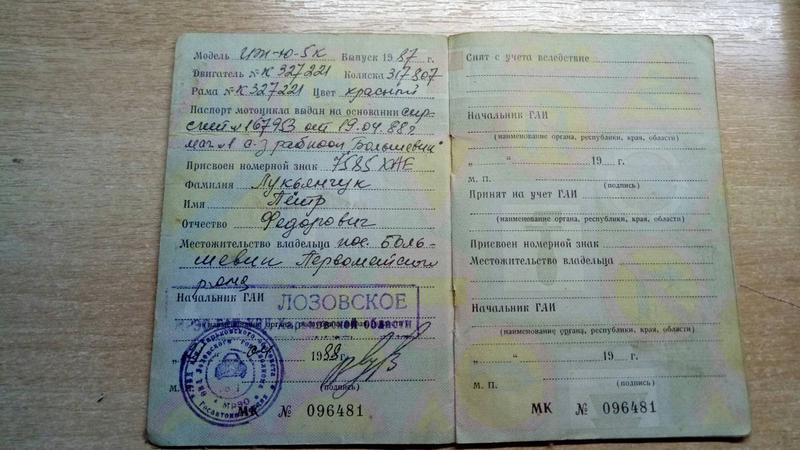 Модель ИЖ-Ю-5К Выпуск 1987 г.
Двигатель № К 327221 Коляска 317807
Рама № К 327221 Цвет красный
Паспорт мотоцикла выдан на основании спр-
счет № 167953 от 19.04.88г
маг №1 с-з рабкооп Большевик"
Присвоен номерной знак 7585 ХАЕ
Фамилия Лукьянчук
Имя Пётр
Отчество Федорович
Местожительство владельца пос. Боль-
шевик Первомайского
р-она
Начальник ГАИ ЛОЗОВСКОЕ
Харьковской области
19 г.
М.
(подпись)
МК № 096481
Снят с учета вследствие
Начальник ГАИ
(наименование органа, республики, края, области)
„ “ 19 г.
М. П.
(подпись)
Принят на учет ГАИ
(наименование органа, республики, края, области)
Присвоен номерной знак
Местожительство владельца
Начальник ГАИ
(наименование органа, республики, края, области)
„ “ 19 г.
М. П.
(подпись)
МК № 096481